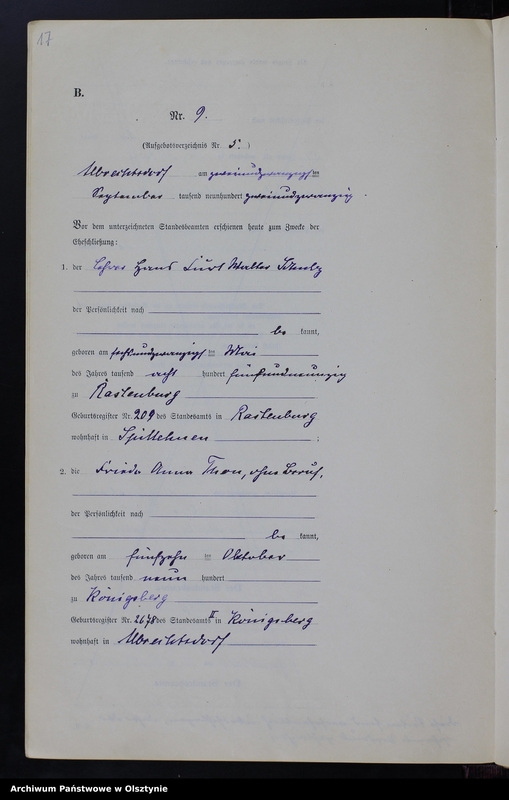 17
B.
Nr. 9.
(Aufgebotsverzeichnis Nr. 5.)
Albrechtsdorf am zweiundzwanzigsten
September tausend neunhundert zweiundzwanzig.
Vor dem unterzeichneten Standesbeamten erschienen heute zum Zwecke der
Eheschließung:
1. der Lehrer Hans Curt Walter Schulz
der Persönlichkeit nach
be kannt,
geboren am sechsundzwanzigsten Mai
des Jahres tausend acht hundert fünfundneunzig
zu Rastenburg
Geburtsregister Nr. 209 des Standesamts in Rastenburg
wohnhaft in ;
2. die Frieda Anna Thon, ohne Beruf,
der Persönlichkeit nach
be kannt,
geboren am fünfzehn ten Oktober
des Jahres tausend neun hundert
zu Königsberg
Geburtsregister Nr. 2678 des Standesamts II in Königsberg
wohnhaft in Albrechtsdorf
Archiwum Państwowe w Olsztynie